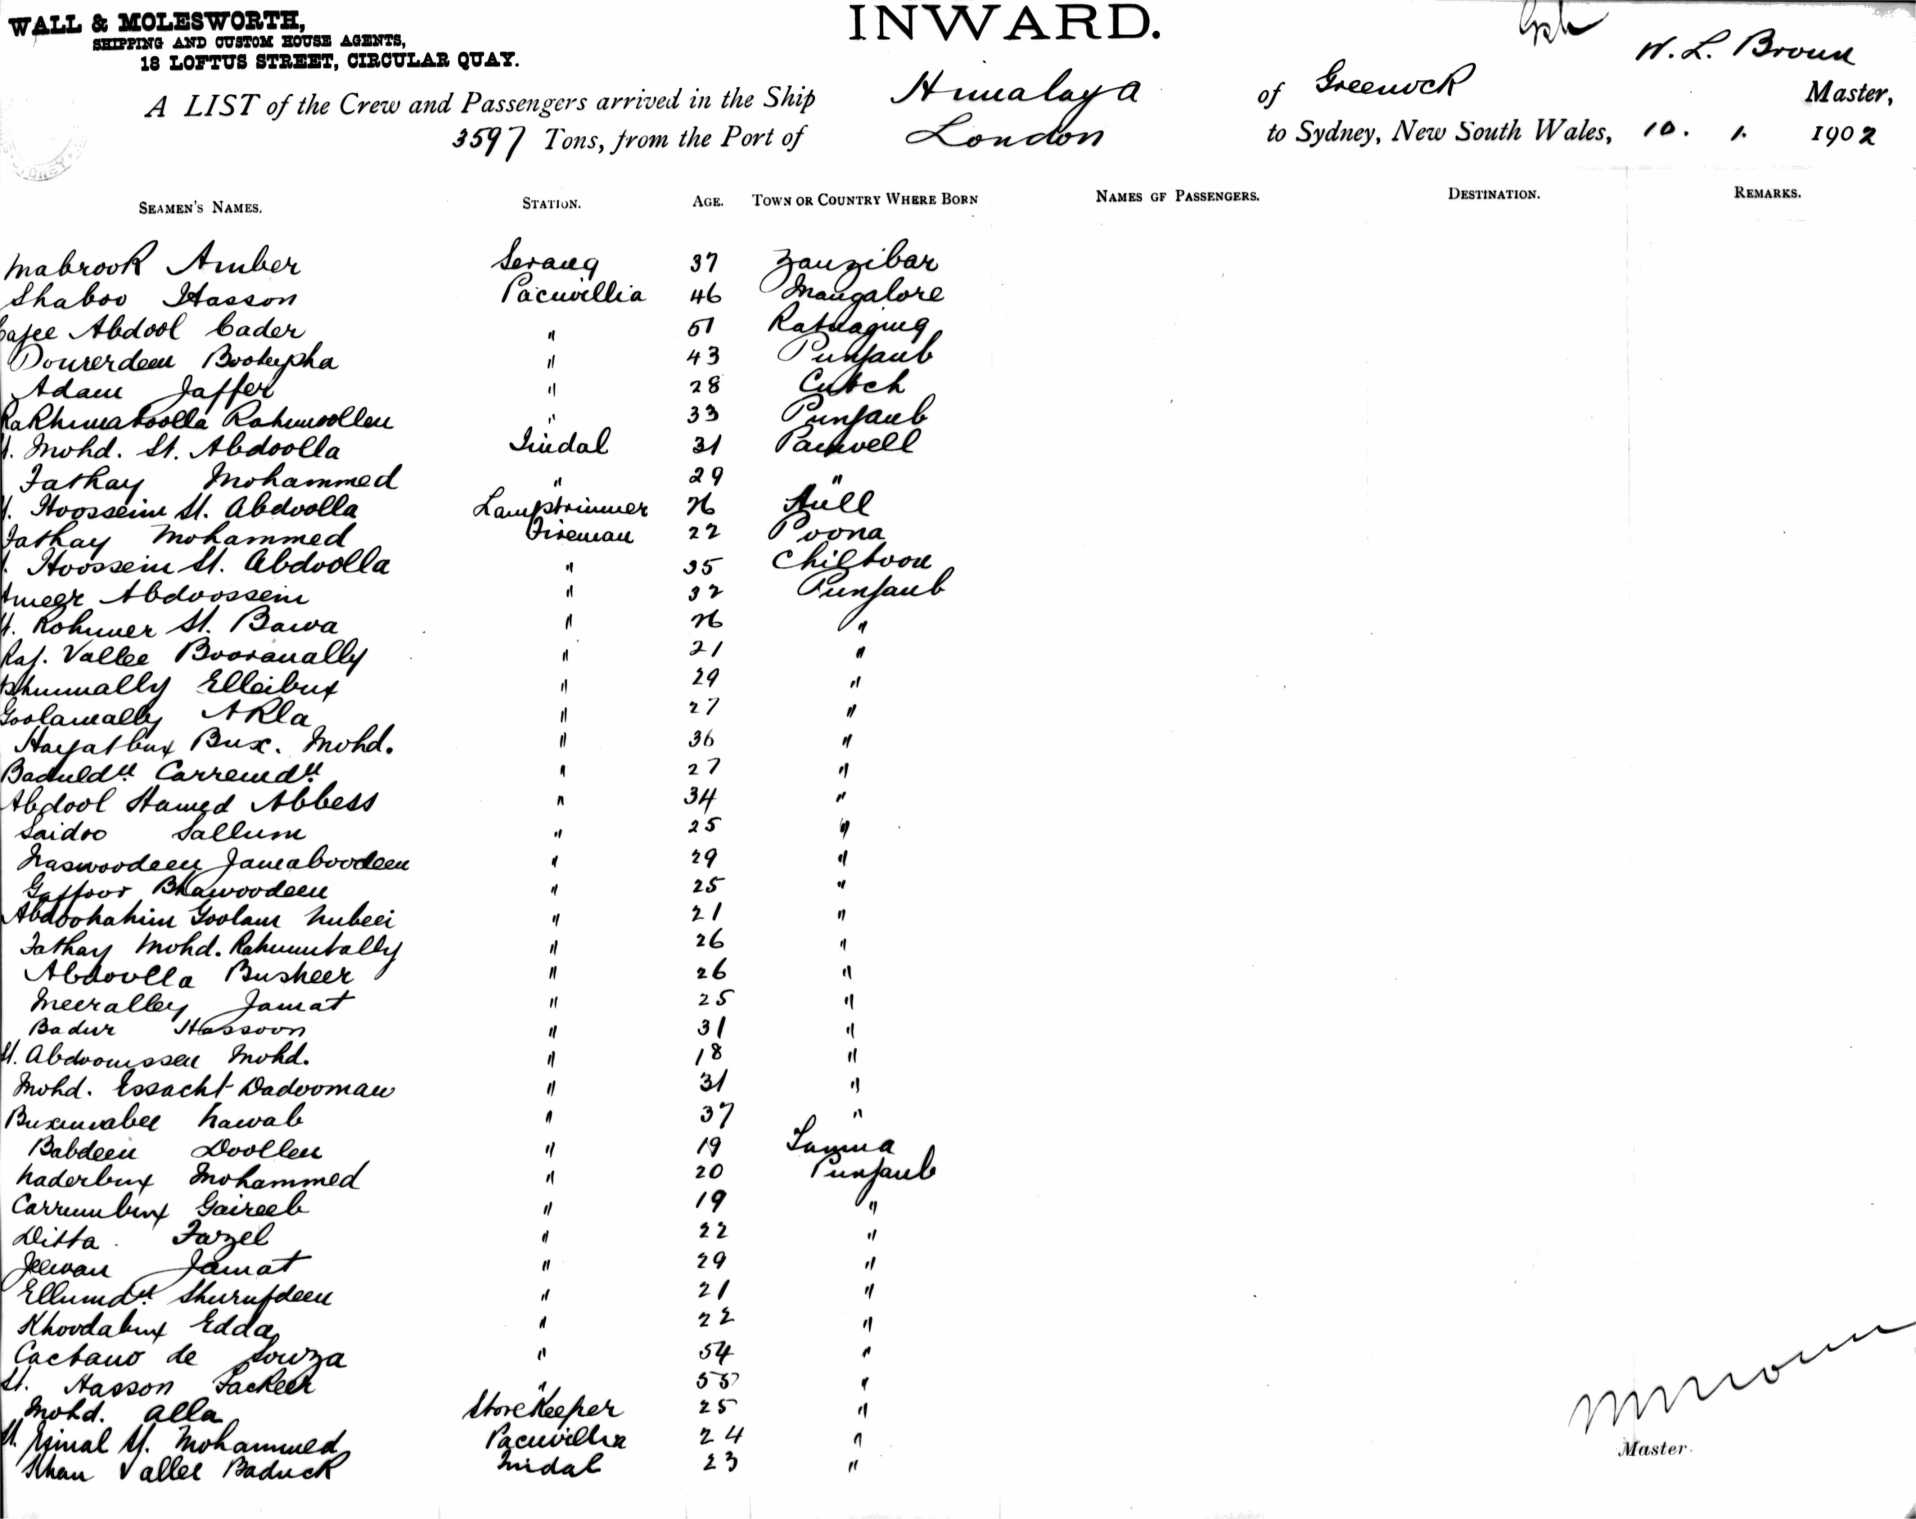 WALL & MOLESWORTH,
SHIPPING AND CUSTOM HOUSE AGENTS,
18 LOFTUS STREET, CIRCULAR QUAY.
INWARD.
W. L. Broun
A LIST of the Crew and Passengers arrived in the Ship Himalaya of Greenock Master,
3597 Tons, from the Port of London to Sydney, New South Wales, 10. 1. 1902
SEAMEN'S NAMES. STATION. AGE. TOWN OR COUNTRY WHERE BORN NAMES OF PASSENGERS. DESTINATION. REMARKS.
Mabrook Amber Serang 37 Zanzibar
Shaboo Hasson Pacuvillia 46 Mangalore
Abdool Cader " 51
" 43 Punjaub
Adam Jaffer " 28 Cutch
" 33 Punjaub
Mohd. St. Abdoolla Tindal 31 Panwell
Fathay Mohammed " 29 "
Hoossein St. Abdoolla Lamptrimmer 26
Fathay Mohammed Fireman 22 Poona
Hoossein St. Abdoolla " 35 Chiltoon
Ameer Abdoossein " 32 Punjaub
St. Bawa " 26 "
Raj. Vallee Booranally " 21 "
Elleibux " 29 "
Goolamally Akla " 27 "
Hayatbux Bux. Mohd. " 36 "
" 27 "
Abdool Hamed Abbess " 34 "
Saidoo Sallum " 25 "
Jamaboodeen " 29 "
Gaffoor Bhawoodeen " 25 "
Goolam Nubeei " 21 "
Fathay Mohd. Rahumtally " 26 "
Abdoolla Busheer " 26 "
Meeralley Jamat " 25 "
Badur Hassoon " 31 "
Mohd. " 18 "
Mohd. Essacht Dadooman " 31 "
Nawab " 37 "
Babdeen Doollen " 19
Naderbux Mohammed " 20 Punjaub
Carrumbux Gaireeb " 19 "
Ditta Fazel " 22 "
Jeewan Jamat " 29 "
Shurufdeen " 21 "
Khoodabux Edda " 22 "
Caetano de Souza " 54 "
St. Hasson Fackeer " 55 "
Mohd. Alla Storekeeper 25 "
Mohammed Pacuvillia 24 "
Khan Vallee Baduck Tindal 23 "
Master